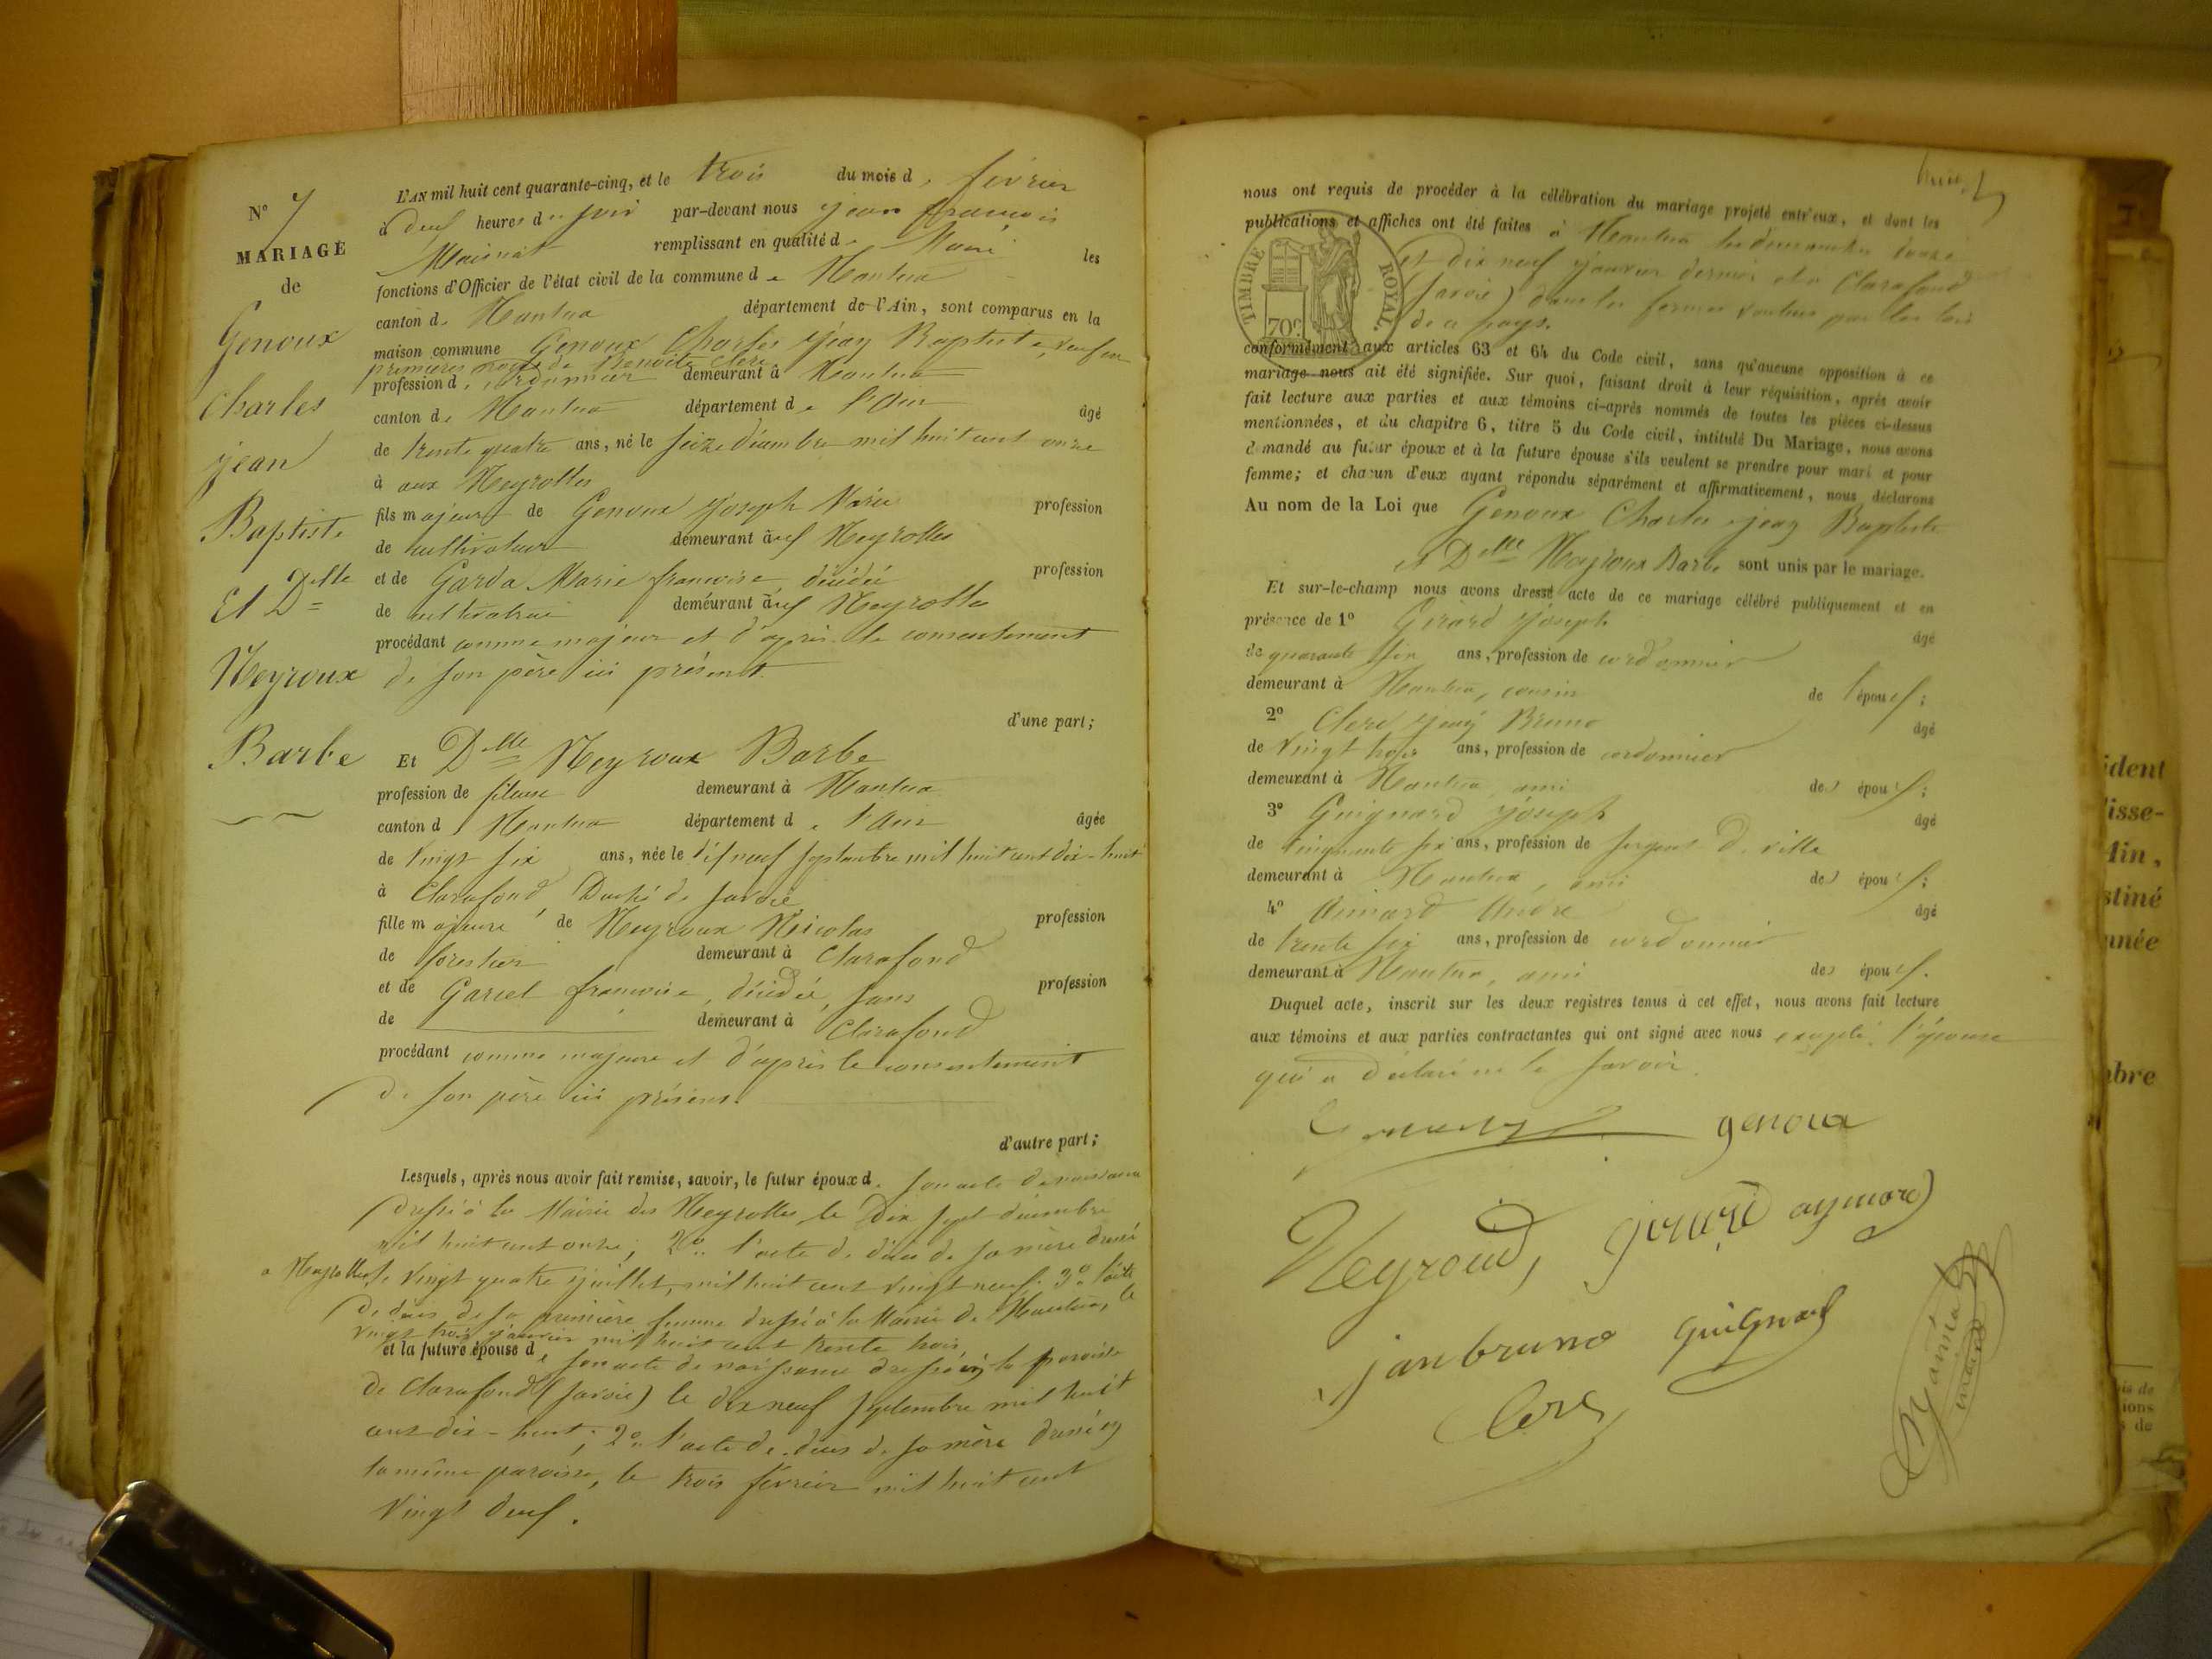 N° 7
MARIAGE
de
Genoux
Charles
jean
Baptiste
Et Delle
Neyroux
Barbe
L'AN mil huit cent quarante-cinq, et le trois du mois de février
à deux heures du soir par-devant nous jean françois
remplissant en qualité de Maire les
fonctions d'Officier de l'état civil de la commune de Nantua
canton de Nantua département de l'Ain, sont comparus en la
maison commune Genoux Charles jean Baptiste, veuf en
premières noces de Benoite Clerc
profession de cordonnier demeurant à Nantua
canton de Nantua département de l'Ain âgé
de trente quatre ans, né le seize décembre mil huit cent onze
à aux Neyrolles
fils majeur de Genoux joseph Marie profession
de cultivateur demeurant aux Neyrolles
et de Garda Marie françoise, décédée profession
de cultivatrice demeurant aux Neyrolles
procédant comme majeur et d'après le consentement
de son père ici présent
d'une part;
Et Delle Neyroux Barbe
profession de fileuse demeurant à Nantua
canton de Nantua département de l'Ain âgée
de vingt six ans, née le dix neuf septembre mil huit cent dix-huit
à Clarafond, Duché de Savoie
fille majeure de Neyroux Nicolas profession
de forestier demeurant à Clarafond
et de Garcel françoise, décédée, sans profession
de demeurant à Clarafond
procédant comme majeure et d'après le consentement
de son père ici présent.
d'autre part;
Lesquels, après nous avoir fait remise, savoir, le futur époux de son acte de naissance
dressé à la Mairie des Neyrolles le dix sept décembre
mil huit cent onze; 2° l'acte de décès de sa mère dressé
a Neyrolles le vingt quatre juillet, mil huit cent vingt neuf. 3° l'acte
de décès de sa première femme dressé à la Mairie de Nantua, le
vingt trois janvier mil huit cent trente trois
et la future épouse de son acte de naissance dressé en la paroisse
de Clarafond (Savoie) le dix neuf septembre mil huit
cent dix-huit; 2° l'acte de décès de sa mère dressé en
la même paroisse, le trois février mil huit cent
vingt deux.
nous ont requis de procéder à la célébration du mariage projeté entr'eux, et dont les
publications et affiches ont été faites à Nantua les dimanches douze
et dix neuf janvier dernier et à Clarafond
(Savoie) dans les formes voulues par les lois
de ce pays.
TIMBRE ROYAL.
70c
conformément aux articles 63 et 64 du Code civil, sans qu'aucune opposition à ce
mariage nous ait été signifiée. Sur quoi, faisant droit à leur réquisition, après avoir
fait lecture aux parties et aux témoins ci-après nommés de toutes les pièces ci-dessus
mentionnées, et du chapitre 6, titre 5 du Code civil, intitulé Du Mariage, nous avons
demandé au futur époux et à la future épouse s'ils veulent se prendre pour mari et pour
femme; et chacun d'eux ayant répondu séparément et affirmativement, nous déclarons
Au nom de la Loi que Genoux Charles jean Baptiste
et Delle Neyroux Barbe sont unis par le mariage.
Et sur-le-champ nous avons dressé acte de ce mariage célébré publiquement et en
présence de 1° Girard joseph âgé
de quarante six ans, profession de cordonnier
demeurant à Nantua, cousin de l'époux;
2° Clerc jean Bruno âgé
de vingt trois ans, profession de cordonnier
demeurant à Nantua, ami des époux;
3° Guignard joseph âgé
de cinquante six ans, profession de sergent de ville
demeurant à Nantua, ami des époux;
4° Aimard André âgé
de trente six ans, profession de cordonnier
demeurant à Nantua, ami des époux.
Duquel acte, inscrit sur les deux registres tenus à cet effet, nous avons fait lecture
aux témoins et aux parties contractantes qui ont signé avec nous excepté l'épouse
qui a déclaré ne le savoir.
genoux
Neyroud, girard aymard
jan bruno guignard
Clerc
ident
isse-
Ain,
stiné
nnée
bre